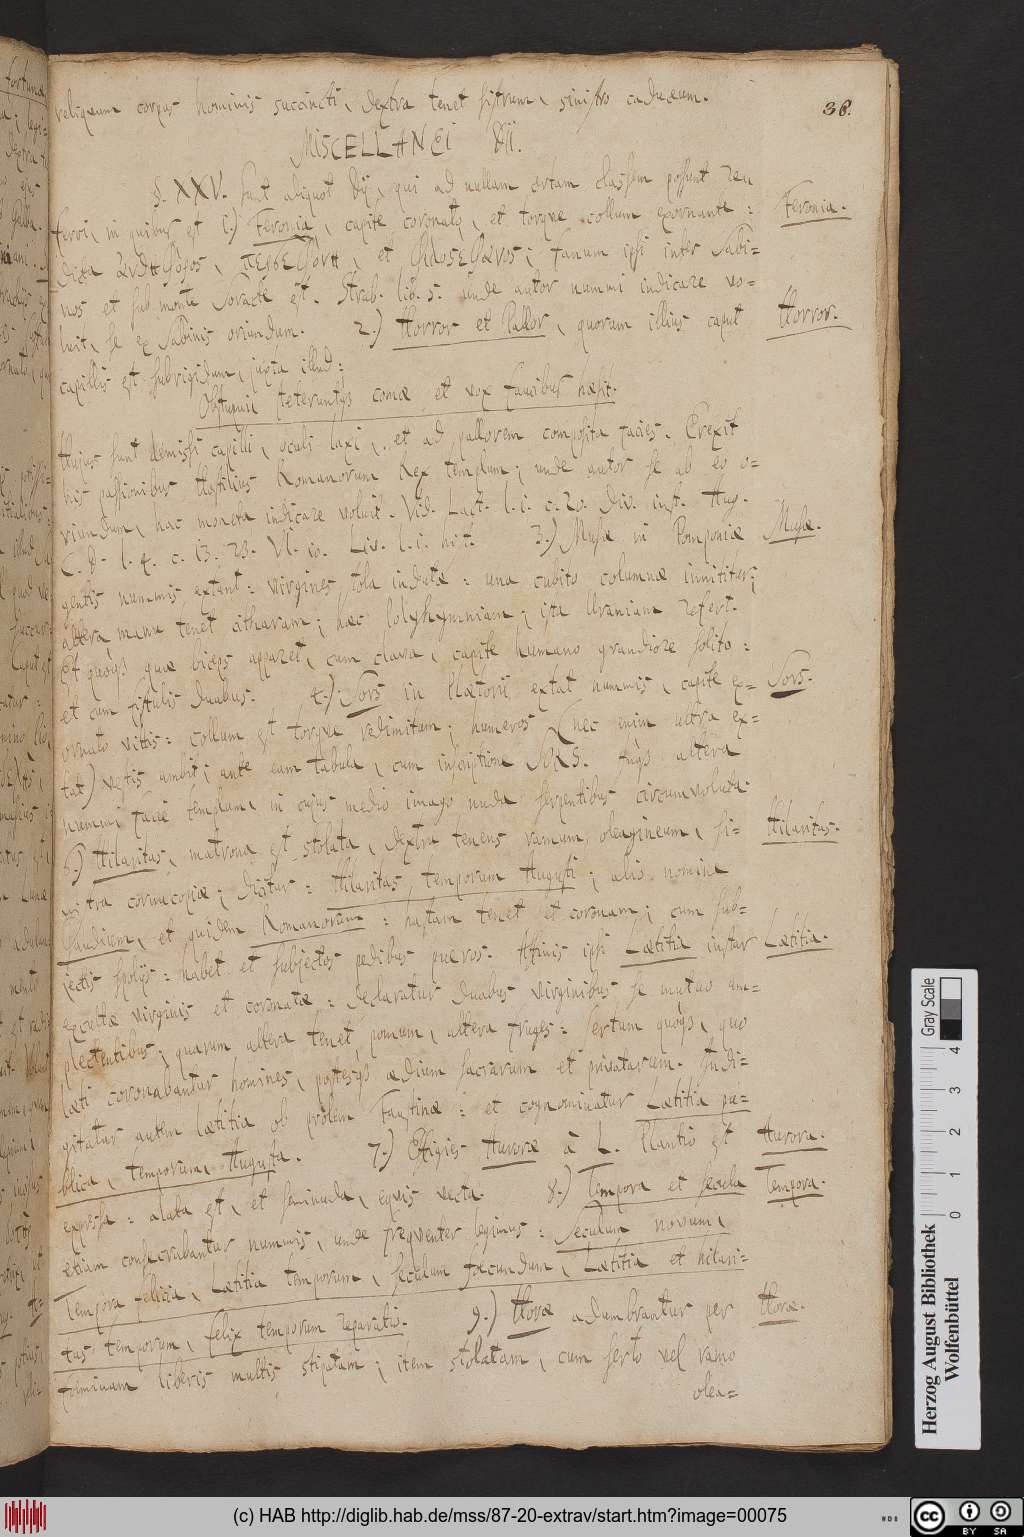 reliquum corpus hominis succincti, dextra tenet sistrum, sinistro caduceum.
38.
MISCELLANEI Dii.
§. XXV. Sunt aliquot Dij, qui ad nullam certam classem possunt re-
ferri, in quibus est 1.) Feronia, capite coronato, et torque collum exornante:
Feronia.
dicta ἀνθηφόρος, et φιλοστέφανος; fanum ipsi inter Sabi=
nos et sub monte Soracte est. Strab. lib. 5. unde autor nummi indicare vo=
luit, se ex Sabinis oriundum. 2.) Horror et Pallor, quorum illius caput
Horror.
capillis est subrigidum, juxta illud:
Obstupui steteruntqs comæ, et vox faucibus hæsit.
Hujus sunt demissi capilli, oculi laxi, et ad pallorem composita facies. Erexit
his passionibus Hostilius Romanorum Rex templum; unde autor se ab eo o=
riundum, hac moneta indicare voluit. Vid. Lact. l. 1. c. 20. Div. inst. Aug.
C. D. l. 4. c. 15. 23. VI. 10. Liv. l. 1. hist. 3.) Musæ in Pomponiæ
Musæ.
gentis nummis extant: virgines stola indutæ: una cubito columnæ innititur;
altera manu tenet citharam; hæc Polyhymniam; ista Uraniam refert.
Est quoqs quæ biceps apparet, cum clava, capite humano grandiore solito:
et cum fistulis duabus. 4.) Sors in Plætorii extat nummis, capite ex=
Sors.
ornato vittis: collum est torque redimitum; humeros (nec enim ultra ex=
tat) vestis ambit; ante eam tabula, cum inscriptione SORS. Inqs altera
nummi facie templum, in cujus medio imago nuda serpentibus circumvoluta.
5.) Hilaritas, matrona est stolata, dextra tenens ramum oleagineum, si=
Hilaritas.
nistra cornucopiæ; dicitur: Hilaritas temporum Augusti; alio nomine
Gaudium, et quidem Romanorum: hastam tenet et coronam; cum sub=
jectis spolijs: habet et subjectos pedibus pueros. Affinis ipsi Lætitia instar
Lætitia.
excultæ virginis et coronatæ: declaratur duabus virginibus se mutuo am=
plectentibus; quarum altera tenet pomum, altera fruges: sertum quoqs, quo
læti coronabantur homines, postesqs ædium sacrarum et privatarum. Indi=
gitatur autem lætitia ob prolem Faustinæ: et cognominatur Lætitia pu=
blica, temporum, Augusta. 7.) Effigies Auroræ à L. Plantio est
Aurora.
expressa: alata est, et seminuda, equis vecta. 8.) Tempora et secula
Tempora.
etiam consecrabantur nummis, unde frequenter legimus: Seculum novum,
Tempora felicia, Lætitia temporum, seculum fœcundum, Lætitia et hilari=
tas temporum, felix temporum reparatio. 9.) Horæ adumbrantur per
Horæ.
fœminam liberis multis stipatam; item stolatam, cum serto vel ramo
olea=
Gray Scale
0 1 2 3 4
Herzog August Bibliothek
Wolfenbüttel
(c) HAB http://diglib.hab.de/mss/87-20-extrav/start.htm?image=00075
cc BY SA